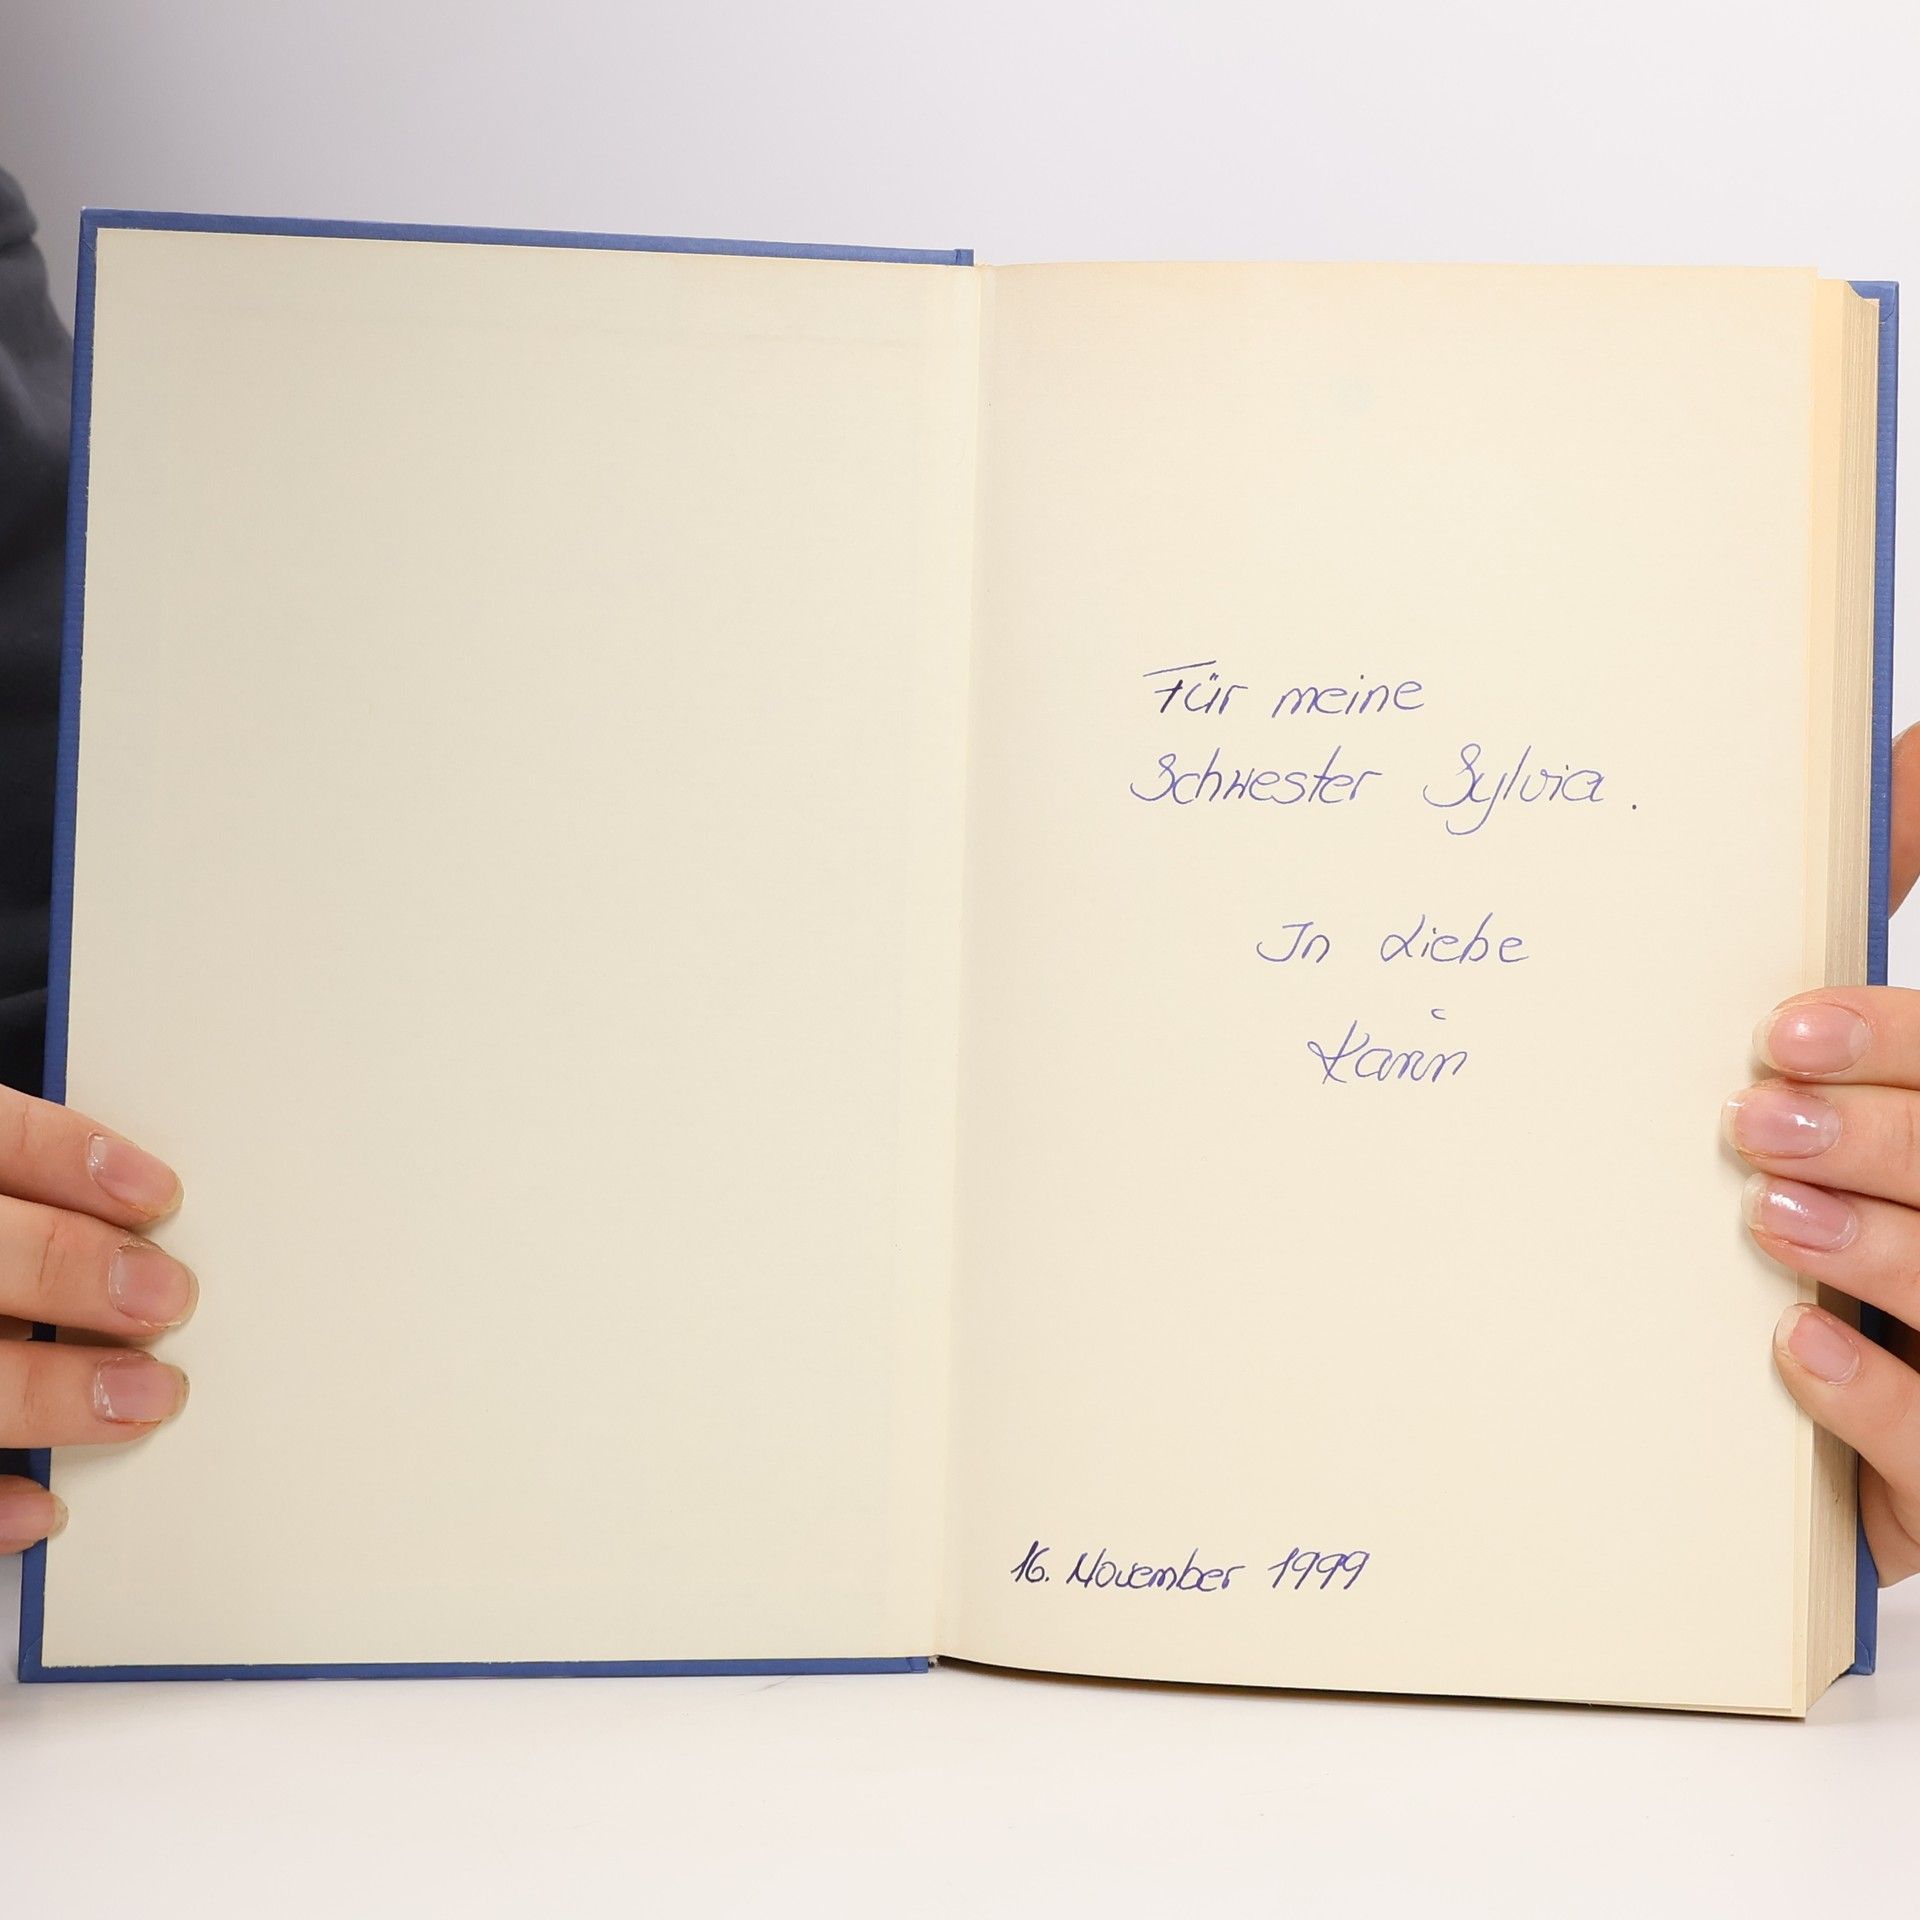 Für meine
Schwester Sylvia.
In Liebe
Karin
16. November 1999